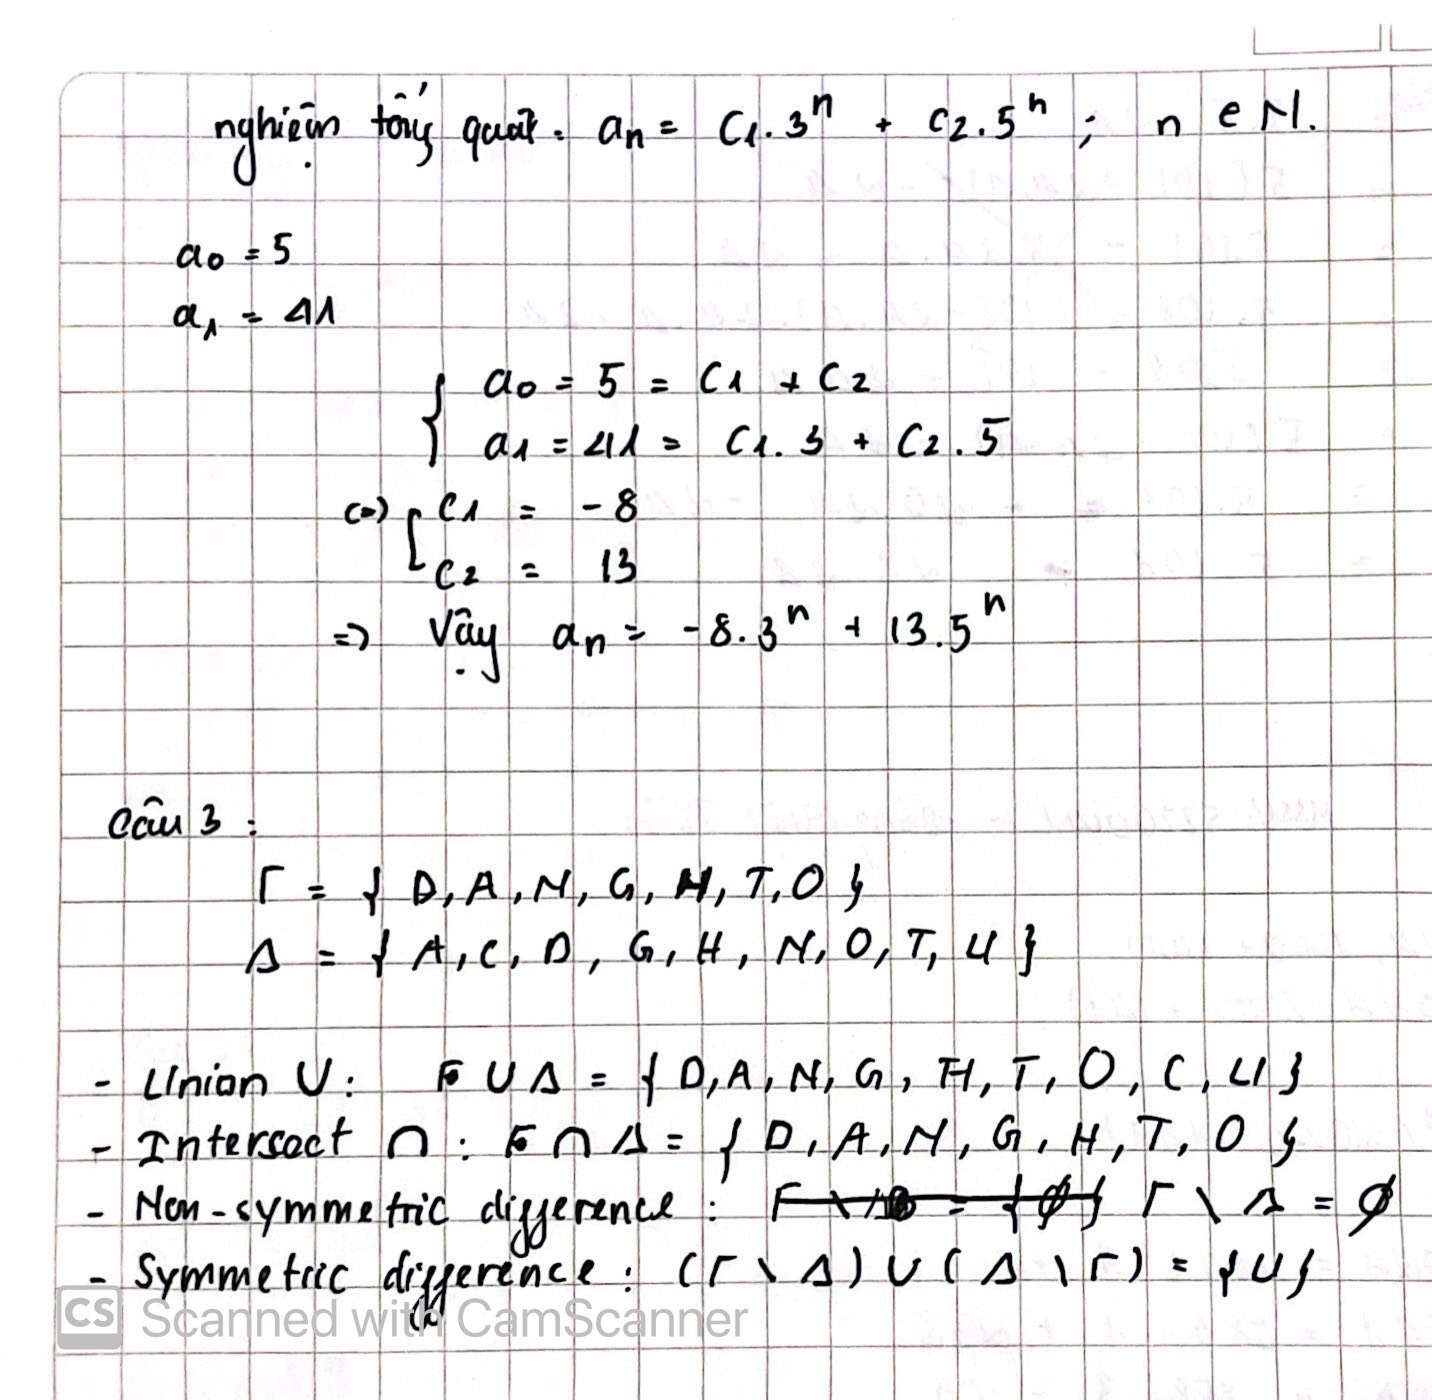 nghiệm tổng quát: an = C1.3^n + C2.5^n ; n ∈ N.
a0 = 5
a1 = 41
{ a0 = 5 = C1 + C2
a1 = 41 = C1.3 + C2.5
<=> [ C1 = -8
C2 = 13
=> Vậy an = -8.3^n + 13.5^n
Câu 3 :
Γ = { D, A, N, G, H, T, O }
Δ = { A, C, D, G, H, N, O, T, U }
- Union ∪: Γ ∪ Δ = { D, A, N, G, H, T, O, C, U }
- Intersect ∩ : Γ ∩ Δ = { D, A, N, G, H, T, O }
- Non-symmetric difference : Γ \ Δ = {∅} Γ \ Δ = ∅
- Symmetric difference : (Γ \ Δ) ∪ (Δ \ Γ) = {U}
CS Scanned with CamScanner